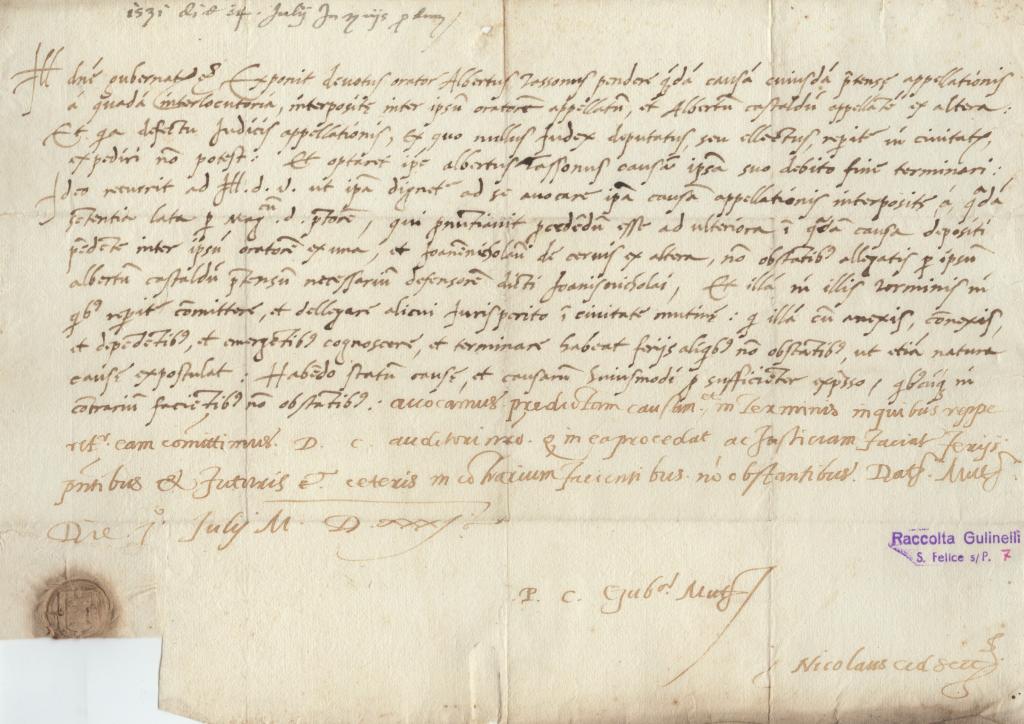 1531 die 14 Julij In
Ill dne gubernator Exponit devotus orator Albertus Tassonus pendere qdā causā cuiusdā ptensę appellationis
a quadā interlocutoria, interposite inter ipsū oratorē appellatū, et Albertū castaldū appellatē ex altera:
Et qa defectu Judicis appellationis, Ex quo nullus Judex deputatus, seu ellectus, repit in civitate,
expediri nō potest: Et optaret ipe albertus Tassonus causā ipsā suo debito fine terminari:
Ideo recurrit ad Ill. d. v. ut ipā dignet ad se avocare ipā causā appellationis interposite a qdā
sententia lata p Mag. d. ptore, qui pnutiavit pcedēdū esse ad ulteriora ī qdā causa depositi
pēdēte inter ipsū oratorē ex una, et Joannēnicholaū de cervis ex altera, nō obstatibꝫ allegatis p ipsum
albertū castaldū ptensū necessariū defensorē dicti Joanisnicholai, Et illā in illis terminis in
qbꝫ repit cōmittere, et dellegare alicui Jurisperito ī civitate mutinę: q illā cū anexis, cōnexis,
et depēdētibꝫ, et emergētibꝫ cognoscere, et terminare habeat ferijs aliqbꝫ nō obstatibꝫ, ut etiā natura
causę expostulat: Habēdo statū causę, et causarū huiusmodi p sufficiēter expsso, qbꝫcūqꝫ in
cōtrariū faciētibꝫ nō obstatibꝫ: avocamus predictam causam et in terminis in quibus reppe
ritr eam comittimus D. C. auditori nro. q in ea procedat ac Justiciam faciat ferijs
pntibus & futuris & ceteris in cōtrarium facientibus nō obstantibus. Dat. Mut.
Die jo Julij M. D. xxxj
P. C. Gubor Mut
Nicolaus
Raccolta Gulinelli
S. Felice s/P. 7